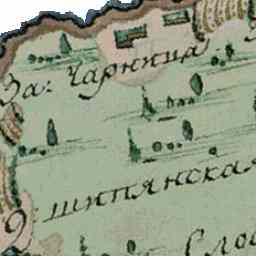 За: Чарница
Д: шипянская
Сло